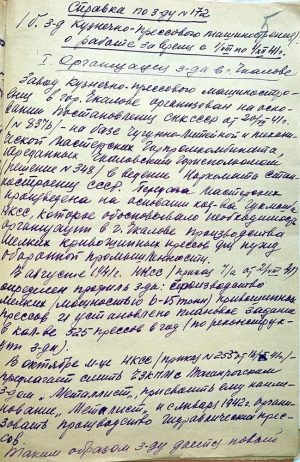 Справка по з-ду №172
/б. з-д Кузнечно-Прессового машиностроения/
о работе за время с
I. Организация з-да в г. Чкалове
Завод Кузнечно-прессового машинострое-
ния в гор. Чкалове организован на осно-
вании Постановления СНК СССР от
на базе Чугунно-литейной и механи-
ческой мастерских
переданных Чкаловским Горисполкомом
/решение №348/, в ведение Наркомата Стан-
костроения СССР. Передача мастерских
произведена на основании
НКСС, которое обосновывало необходимость
организации в г. Чкалове производство
мелких кривошипных прессов для нужд
оборонной промышленности.
В августе 1941г. НКСС /приказ
определен профиль з-да: производство
мелких /мощностью 6-15 тонн/ кривошипных
прессов и установлено плановое задание
в кол-ве 525 прессов в год /по реконструк-
ции з-да/.
В октябре м-це НКСС /приказ
предлагает слить ЧЗКПМС с Таганрогским
з-дом "Металлист", присвоить ему наиме-
нование "Металлист" и с января 1942г. органи-
зовать производство гидравлических прес-
сов.
Таким образом з-ду дается новый